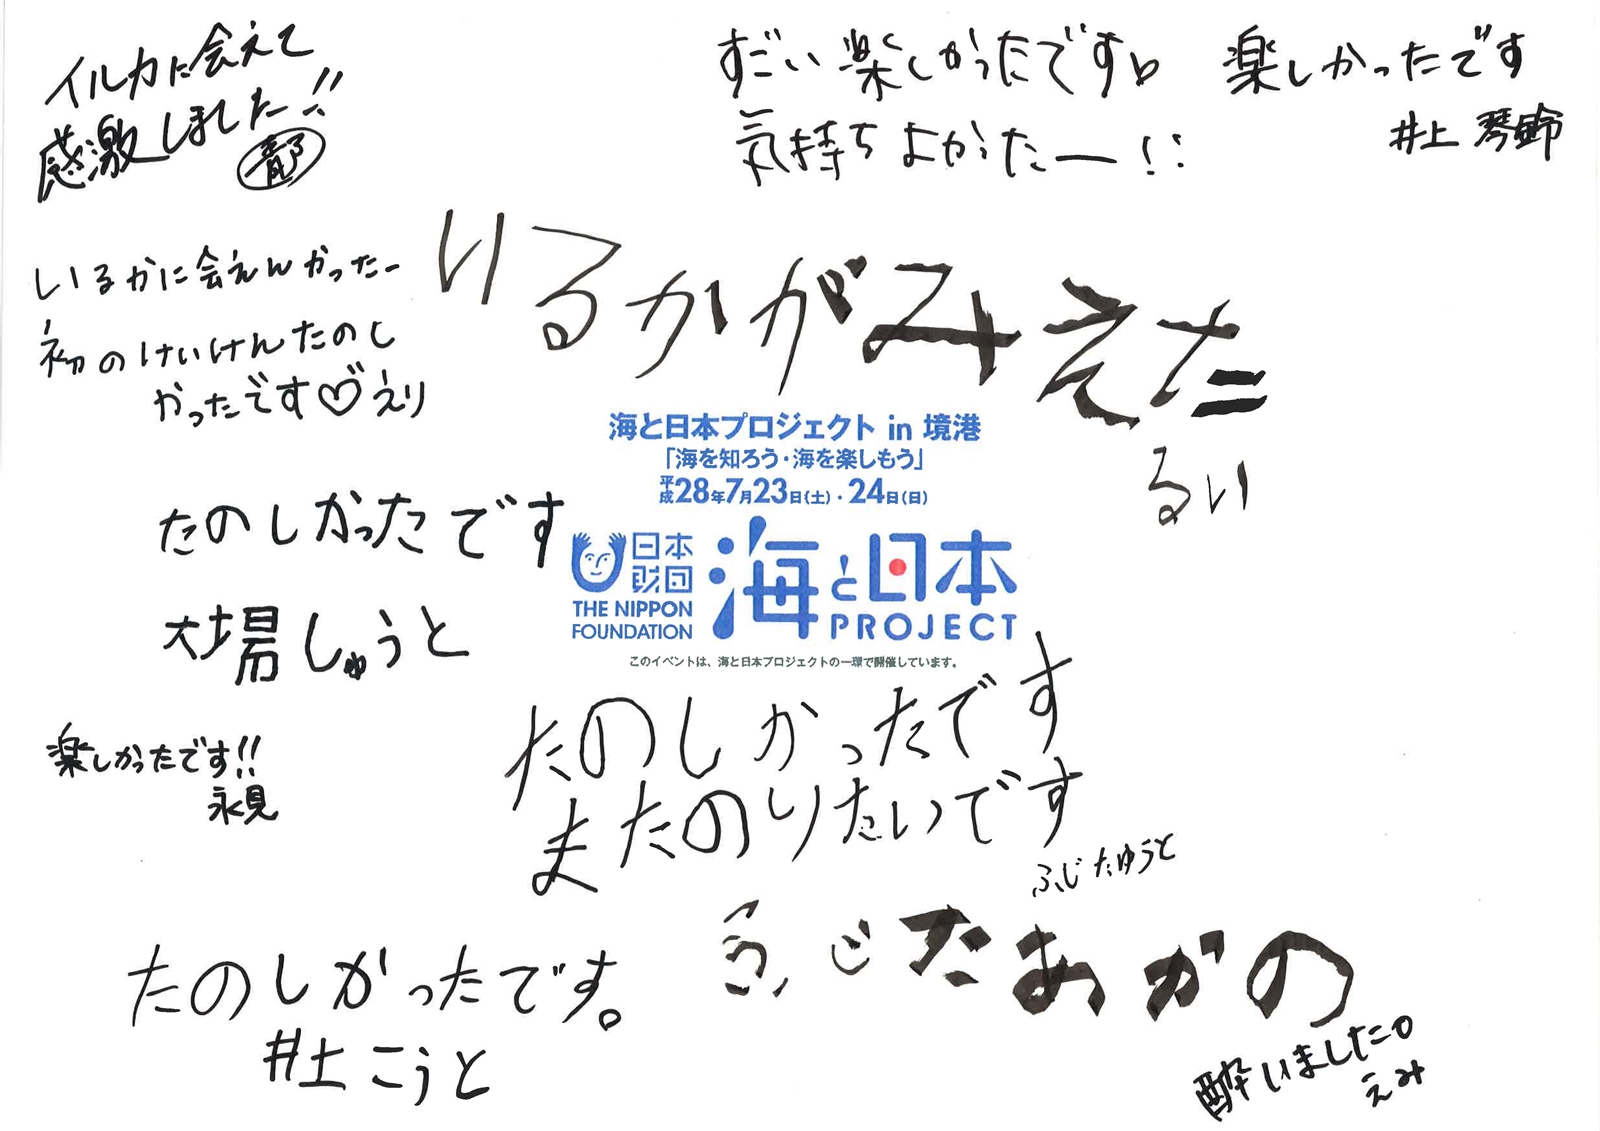 イルカに会えて
感激しました!!
すごい楽しかったです♡
気持ちよかったー!!
楽しかったです
井上 琴鈴
いるかに会えんかったー
初のけいけんたのし
かったです♡えり
いるかがみえた
るい
海と日本プロジェクト in 境港
「海を知ろう・海を楽しもう」
平成28年7月23日(土)・24日(日)
日本財団
THE NIPPON FOUNDATION
海と日本
PROJECT
このイベントは、海と日本プロジェクトの一環で開催しています。
たのしかったです
大場しゅうと
楽しかったです!!
永見
たのしかったです
またのりたいです
ふじたゆうと
ふじたあかの
たのしかったです。
井上こうと
酔いました。
えみ